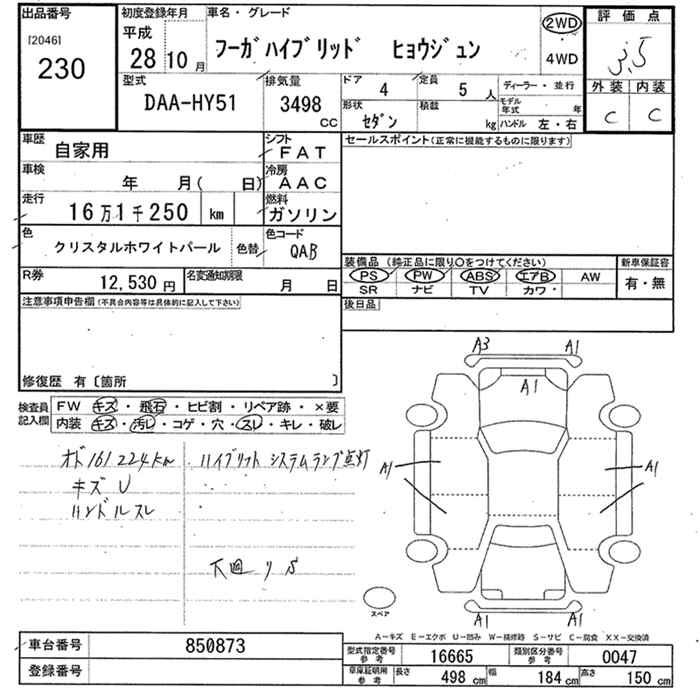 出品番号 初度登録年月 車名・グレード 評価点
[2046] 平成 2WD
230 28 10月 フーガハイブリッド ヒョウジュン 4WD 3.5
型式 排気量 ドア 定員 ディーラー・並行 外装 内装
DAA-HY51 3498 CC 4 5人 モデル年式 年 C C
形状 セダン 積載 kg ハンドル 左・右
車歴 自家用 シフト FAT セールスポイント(正常に機能するものに限ります)
車検 年 月( 日) 冷房 AAC
走行 16万1千250 km 燃料 ガソリン
色 クリスタルホワイトパール 色替 色コード QAB
装備品(純正品に限り○をつけてください) 新車保証容
PS PW ABS エアB AW 有・無
SR ナビ TV カワ・
R券 12,530円 名変通知期限 月 日 後日品
注意事項申告欄(不具合内容等は具体的に記入して下さい)
修復歴 有〔箇所 〕
A3 A1
A1
検査員記入欄 FW キズ・飛石・ヒビ割・リペア跡・×要
内装 キズ・汚レ・コゲ・穴・スレ・キレ・破レ
オド161224km ハイブリットシステムランプ点灯
キズU
ハンドルスレ
A1 A1
下廻りS
スペア
A1 A1
A-キズ E-エクボ U-凹み W-補修跡 S-サビ C-腐食 XX-交換済
車台番号 850873 型式指定番号参考 16665 類別区分番号参考 0047
登録番号 車庫証明用参考 長さ 498cm 幅 184cm 高さ 150cm